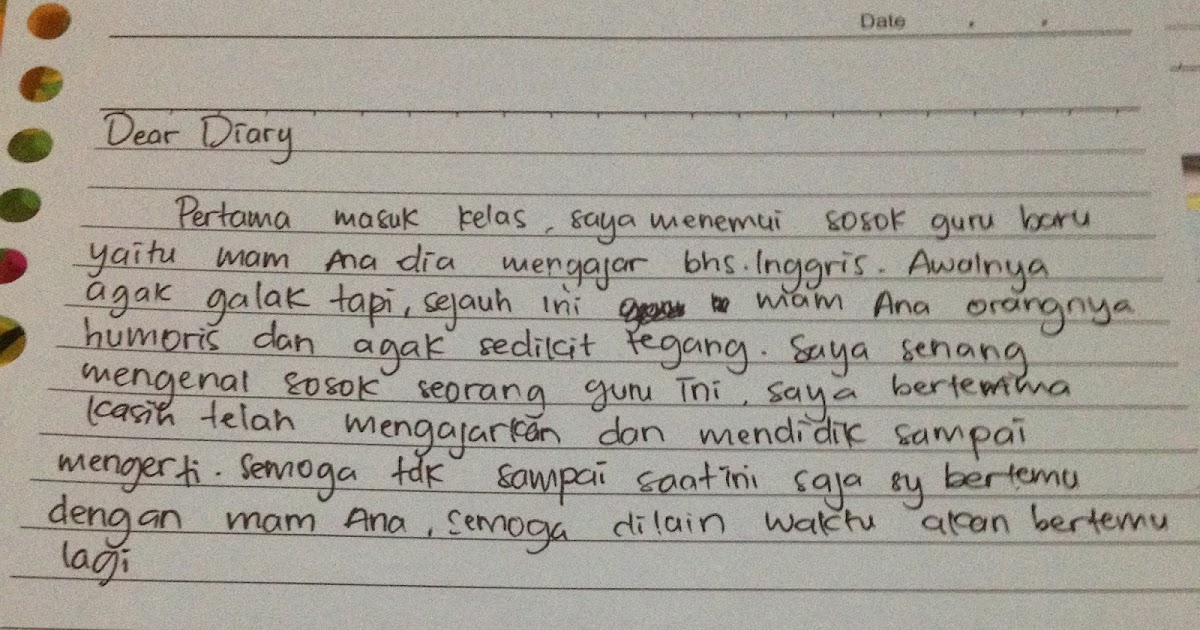 Date
Dear Diary
Pertama masuk kelas, saya menemui sosok guru baru
yaitu mam Ana dia mengajar bhs. Inggris. Awalnya
agak galak tapi, sejauh ini mam Ana orangnya
humoris dan agak sedikit tegang. Saya senang
mengenal sosok seorang guru ini, saya bertemima
kasih telah mengajarkan dan mendidik sampai
mengerti. Semoga tdk sampai saat ini saja sy bertemu
dengan mam Ana, semoga dilain waktu akan bertemu
lagi